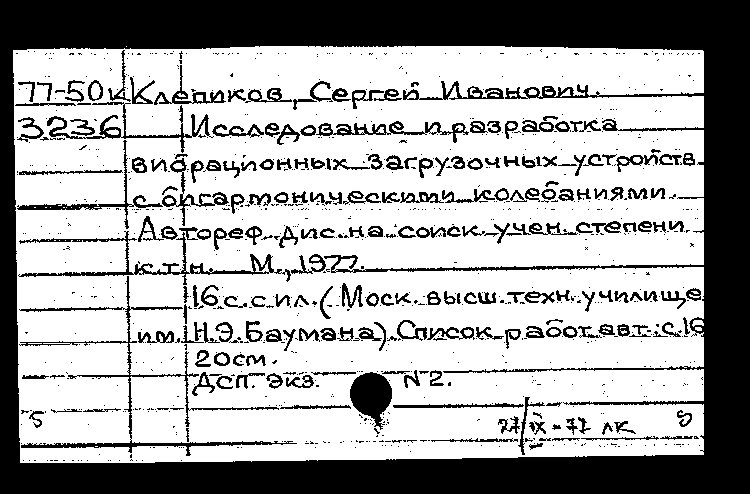 77-50к Клепиков, Сергей Иванович.
3236 Исследование и разработка
вибрационных загрузочных устройств
с бигармоническими колебаниями.
Автореф. дис. на соиск. учен. степени
к.т.н. М., 1977.
16 с. с ил. (Моск. высш. техн. училище
им. Н.Э. Баумана). Список работ авт.: с. 16
20см.
ДСП. экз. N 2.
27/IX-77 лк